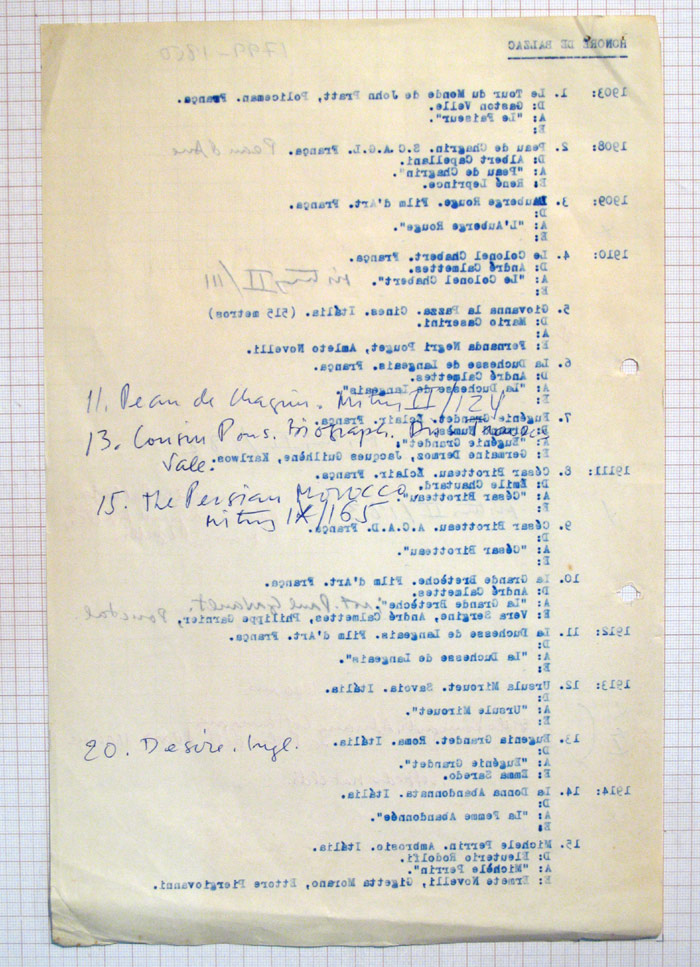 HONORÉ DE BALZAC
1799-1850
1903: 1. Le Tour du Monde de John Pratt, Policeman. França.
D: Gaston Velle.
A: "Le Faiseur".
E:
1908: 2. Peau de Chagrin. S.C.A.G.L. França.
D: Albert Capellani.
A: "Peau de Chagrin".
E: René Leprince.
1909: 3. L'auberge Rouge. Film d'Art. França.
D:
A: "L'Auberge Rouge".
E:
1910: 4. Le Colonel Chabert. França.
D: André Calmettes.
A: "Le Colonel Chabert". II/111
E:
5. Giovanna la Pazza. Cines. Itália. (515 metros)
D: Mario Caserini.
A:
E: Fernanda Negri Pouget, Amleto Novelli.
6. La Duchesse de Langeais. França.
D: André Calmettes.
A: "La Duchesse de Langeais"
E:
11. Peau de Chagrin. Mitry II/124
7. Eugénie Grandet. Eclair. França.
D:
A: "Eugénie Grandet".
E: Germaine Dermoz, Jacques Guilhène, Karlwos.
13. Cousin Pons. Biograph.
Vale.
19111: 8. César Birotteau. Éclair. França.
D: Émile Chautard.
A: "César Birotteau"
E:
15. The Persian Morocco.
Mitry IX/165
9. César Birotteau. A.C.A.D. França.
D:
A: "César Birotteau".
E:
10. la Grande Bretèche. Film d'Art. França.
D: André Calmettes.
A: "La Grande Bretèche".
E: Vera Sergine, André Calmettes, Philippe Garnier,
1912: 11. la Duchesse de Langeais. Film d'Art. França.
D:
A: "La Duchesse de Langeais".
E:
1913: 12. Ursula Mirouet. Savoia. Itália.
D:
A: "Ursule Mirouet".
E:
13. Eugenia Grandet. Roma. Itália.
D:
A: "Eugénie Grandet".
E: Emma Saredo.
20. Desire. Ingl.
1914: 14. la Donna Abandonnata. Itália.
D:
A: "La Femme Abandonnée".
E:
15. Michele Perrin. Ambrosio. Itália.
D: Eleuterio Rodolfi.
A: "Michèle Perrin".
E: Ermete Novelli, Gigetta Morano, Ettore Piergiovanni.